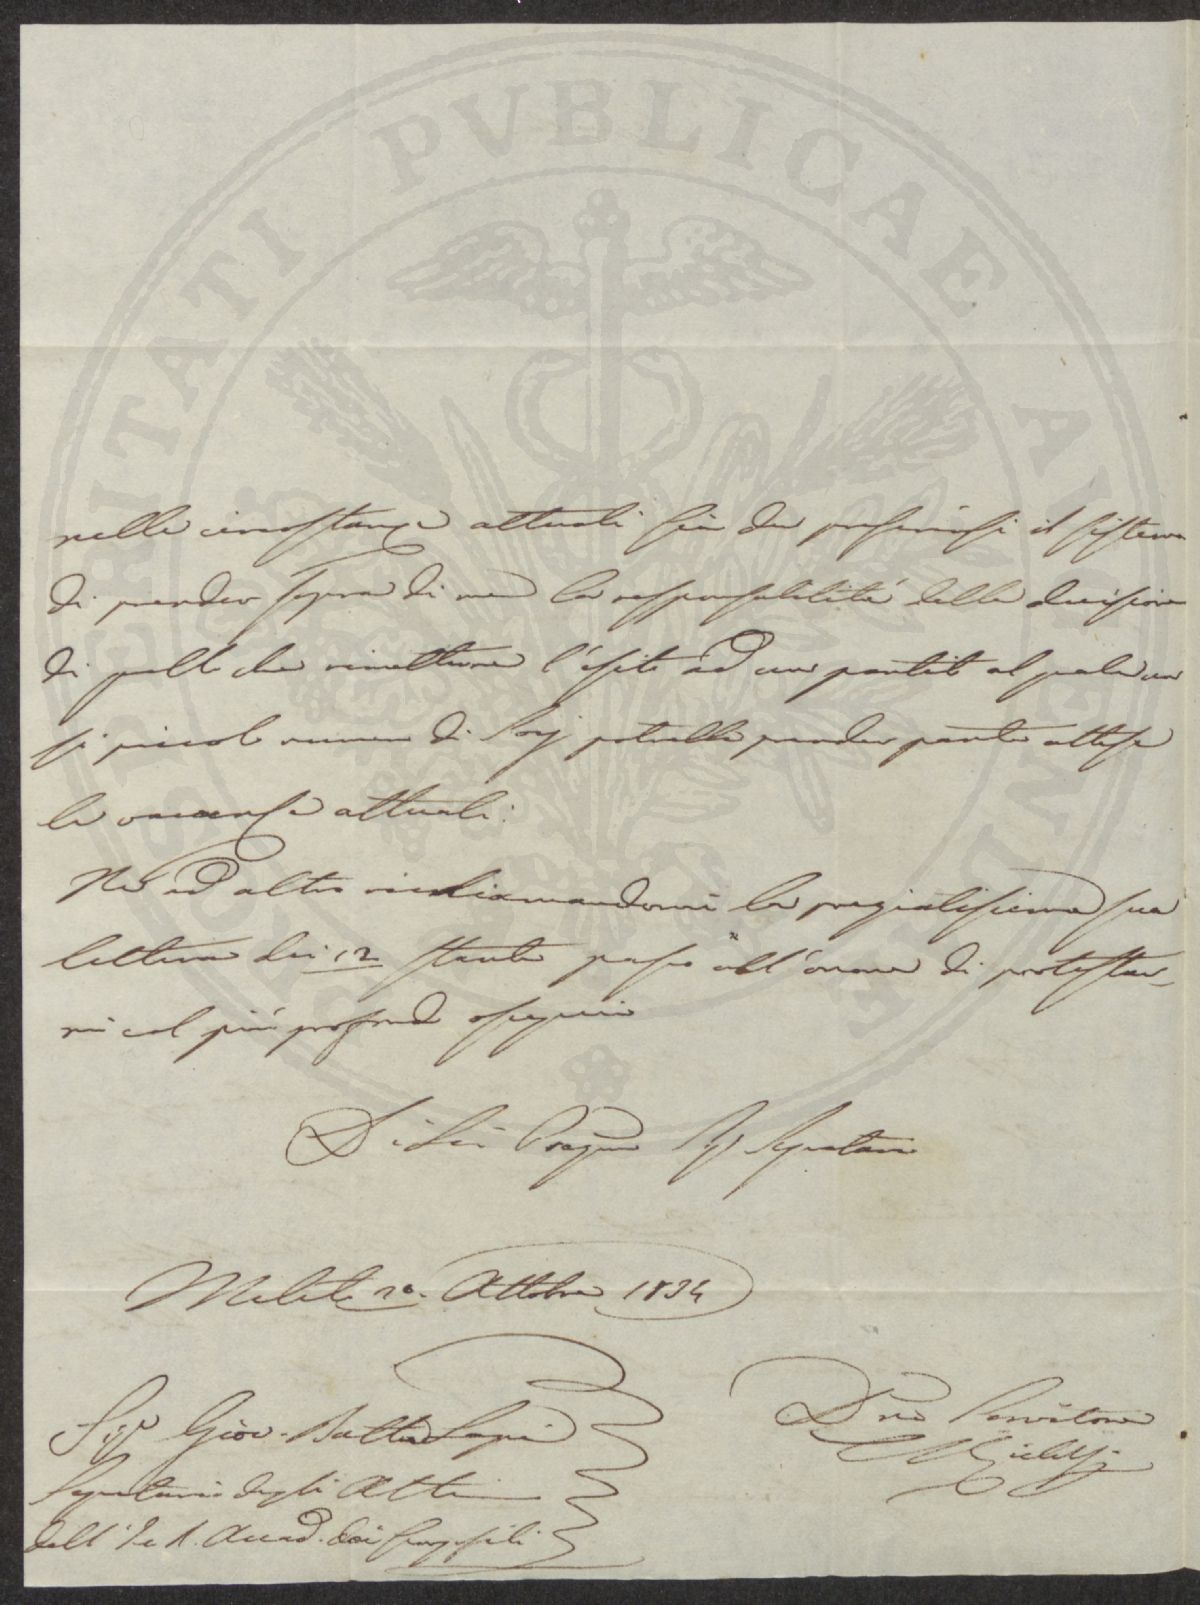 PROSPERITATI PVBLICAE AVGENDAE
nelle circostanze attuali sia da preferirsi il sistema
di prender sopra di me la responsabilità della decisione
di quello che rimetterne l'esito ad un partito al quale un
sì piccolo numero di Socj potrebbe prender parte attese
le vacanze attuali.
Nè ad altro richiamandomi la pregiatissima sua
lettera dei 12 stante passo all'onore di protestar-
mi col più profondo ossequio
Di Lei Pregmo Sig Segretario
Meleto 20. Ottobre 1834
Sigr. Giov. Batta Lapi
Segretario degli Atti
dell'I e R. Accad. dei Georgofili
Dmo Servitore
CRidolfi